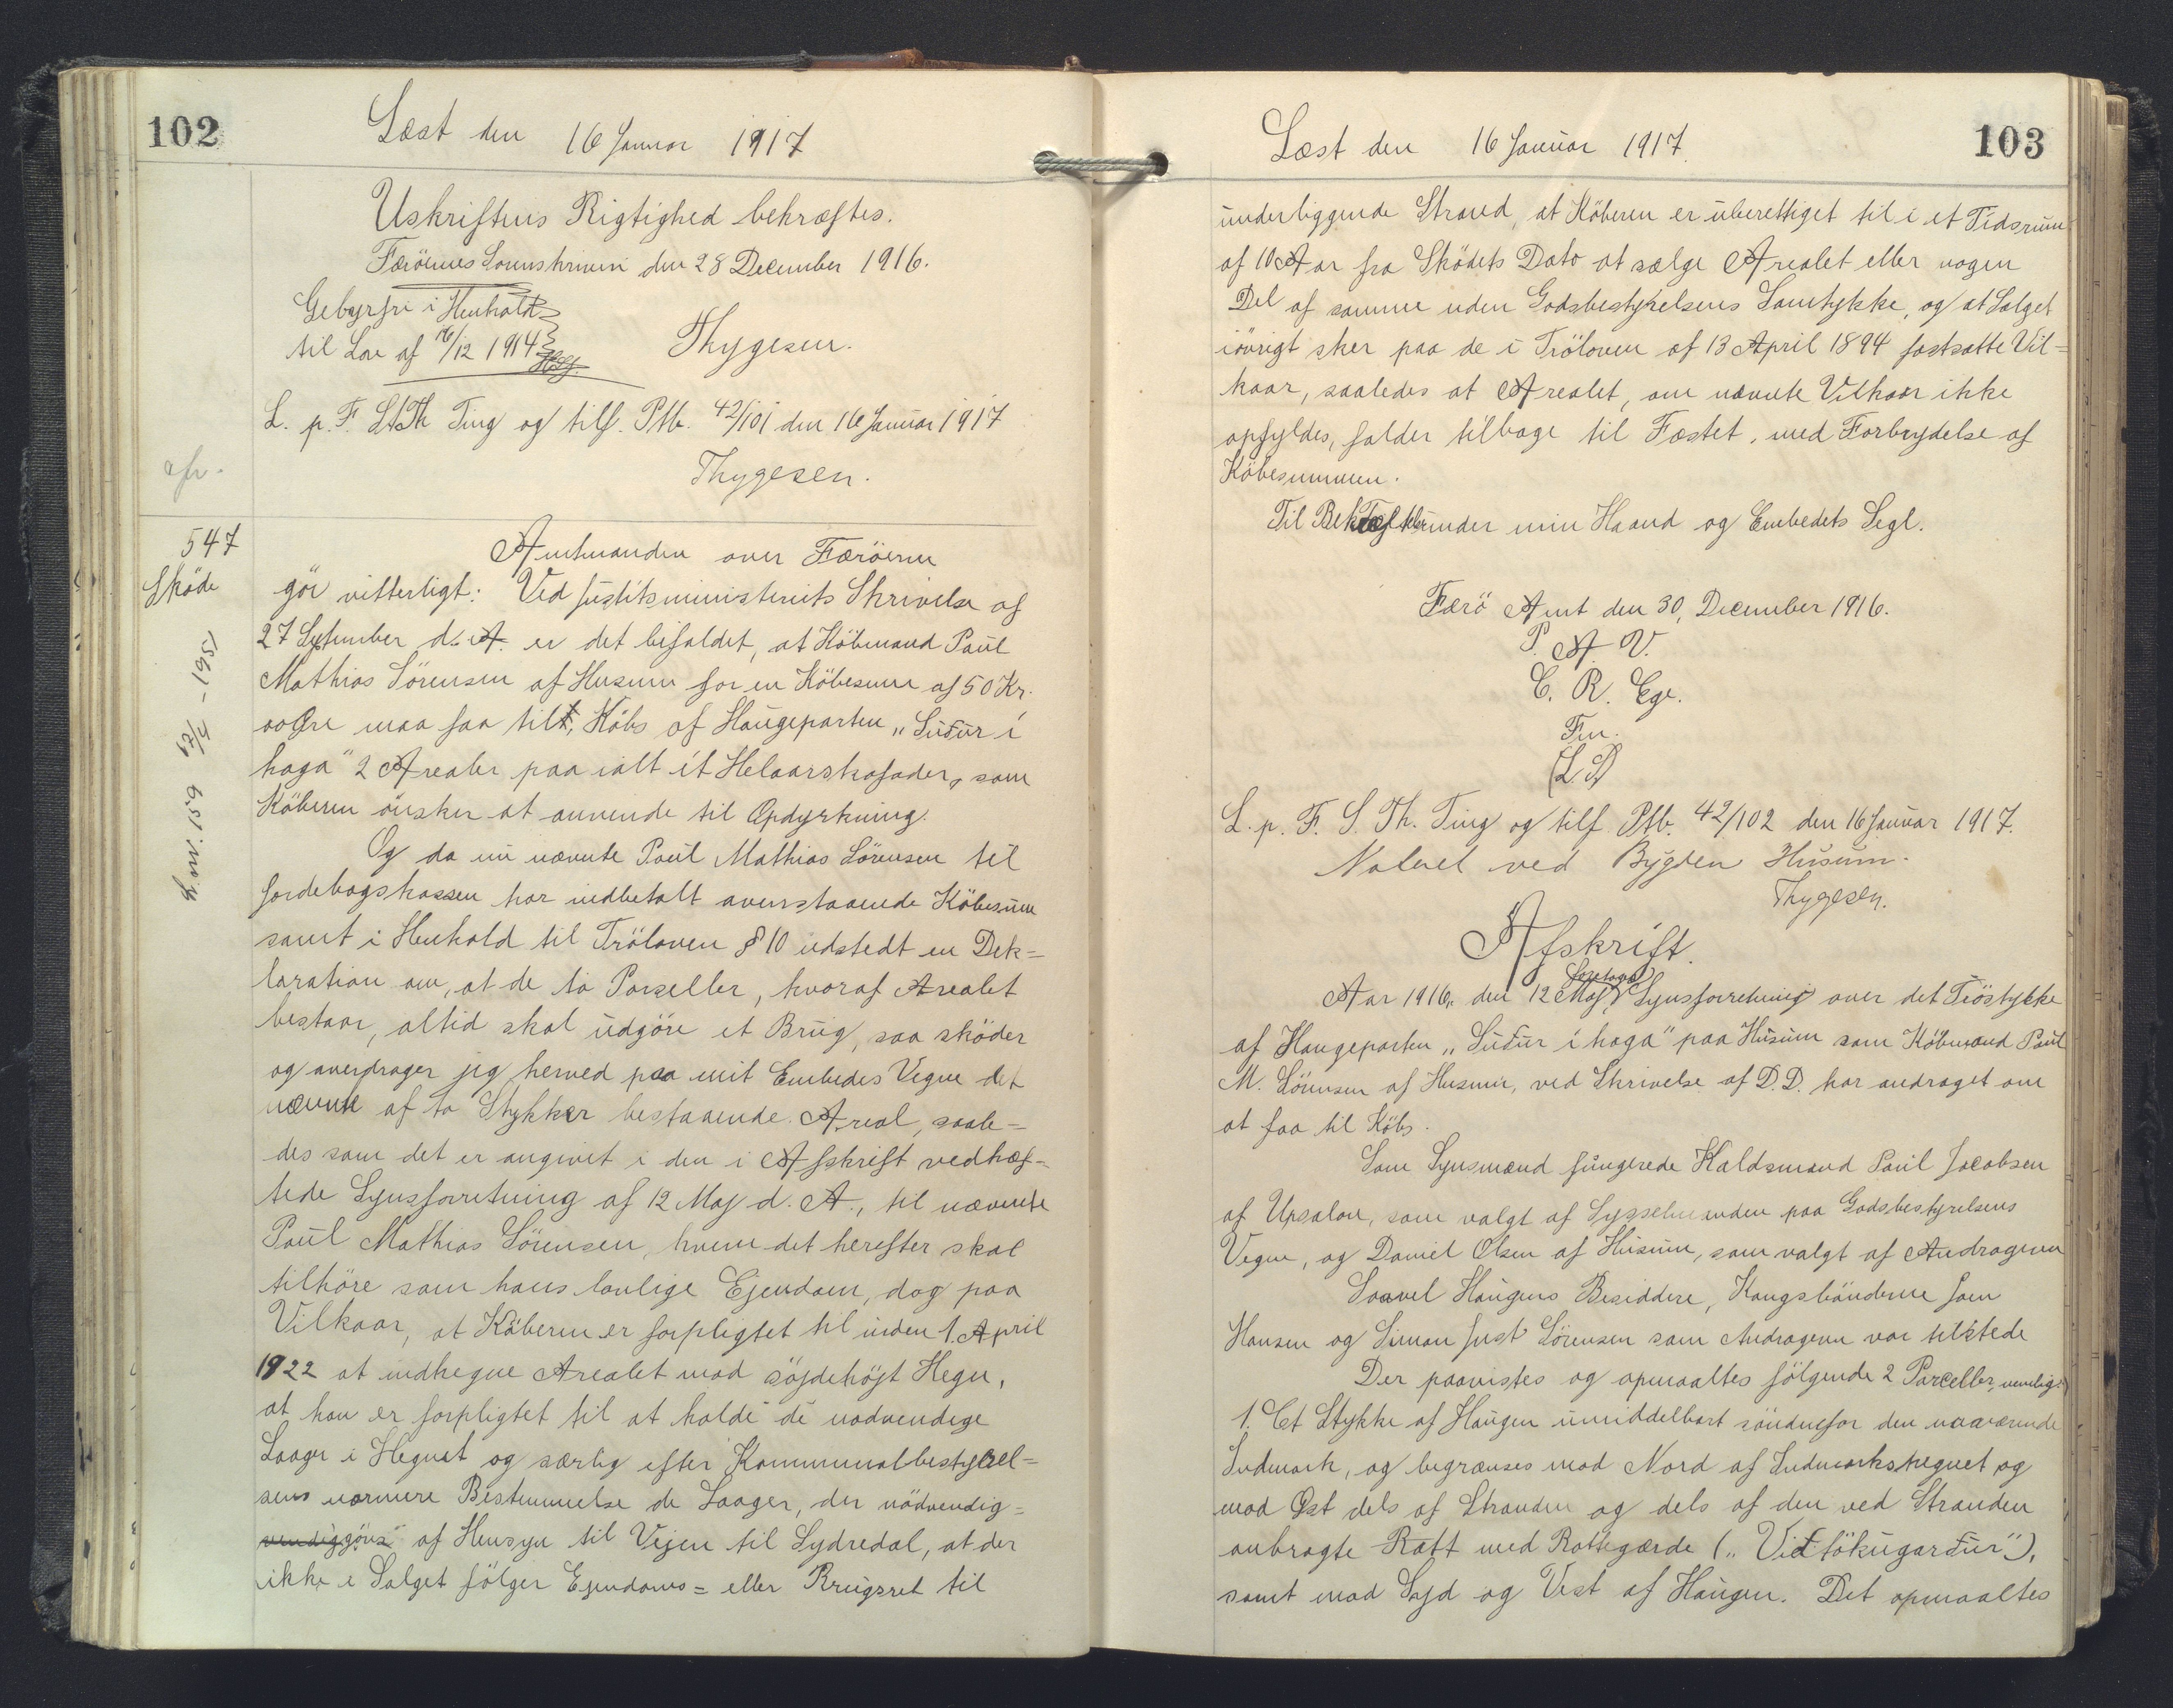 102
Læst den 16 Januar 1917
Uskriftens Rigtighed bekræftes.
Færöernes Sorenskriveri den 28 December 1916.
Gebyrfri i Henhold
til Lov af 16/12 1914
Thygesen.
L. p. F. S. Th Ting og tilf. Ptb. 42/101 den 16 Januar 1917
Thygesen.
afr.
547
Sköde
Amtmanden over Færöerne
gör vitterligt: Ved Justitsministeriets Skrivelse af
27 September d. A. er det bifaldet, at Köbmand Paul
Mathias Sörensen af Husum for en Köbesum af 50 Kr.
00 Øre maa faa til Köbs af Haugeparten „Suður í
haga" 2 Arealer paa ialt ét Helaarskofoder, som
Köberen önsker at anvende til Opdyrkning.
Og da nu nævnte Poul Mathias Sörensen til
Jordebogskassen har indbetalt ovenstaaende Köbesum
samt i Henhold til Tröloven § 10 udstedt en Dek=
laration om, at de to Parseller, hvoraf Arealet
bestaar, altid skal udgöre et Brug, saa sköder
og overdrager jeg herved paa mit Embedes Vegne det
nævnte af to Stykker bestaaende Areal, saale=
des som det er angivet i den i Afskrift vedhæf=
tede Synsforretning af 12 Maj d. A., til nævnte
Poul Mathias Sörensen, hvem det herefter skal
tilhöre som hans lovlige Ejendom, dog paa
Vilkaar, at Köberen er forpligtet til inden 1. April
1922 at indhegne Arealet mod söjdehöjt Hegn,
at han er forpligtet til at holde de nødvendige
Laager i Hegnet og særlig efter Kommunalbestyrel=
sens nærmere Bestemmelse de Laager, der nödvendig=
vendiggöres af Hensyn til Vejen til Sydredal, at der
ikke i Salget fölger Ejendoms= eller Brugsret til
103
Læst den 16 Januar 1917.
underliggende Strand, at Köberen er uberettiget til i et Tidsrum
af 10 Aar fra Sködets Dato at sælge Arealet eller nogen
Del af samme uden Godsbestyrelsens Samtykke, og at Salget
iövrigt sker paa de i Tröloven af 13 April 1894 fastsatte Vil=
kaar, saaledes at Arealet, om nævnte Vilkaar ikke
opfyldes, falder tilbage til Fæstet, med Forbrydelse af
Köbesummen.
Til Bekræftelse under min Haand og Embedets Segl.
Færö Amt den 30, December 1916.
P. A. V.
C. R. Ege.
Fm.
(L. S.)
L. p. F. S. Th. Ting og tilf. Ptb. 42/102 den 16 Januar 1917.
ved Bygden Húsum.
Thygesen.
Afskrift.
Aar 1916, den 12 Maj foretoges Synsforretning over det Tröstykke
af Haugeparten „Suður í haga" paa Húsum som Köbmand Poul
M. Sörensen af Husum, ved Skrivelse af D. D. har andraget om
at faa til Köbs.
Som Synsmænd fungerede Haldsmand Poul Jacobsen
af Upsalon, som valgt af Sysselmanden paa Godsbestyrelsens
Vegne, og Daniel Olsen af Húsum, som valgt af Andrageren
Saavel Haugens Besiddere, Kongsbönderne Joen
Hansen og Simon Just Sörensen som Andrageren var tilstede
Der paavistes og opmaaltes fölgende 2 Parceller, nemlig:
1. Et Stykke af Haugen umiddelbart söndenfor den nuværende
Indmark, og begrænses mod Nord af Indmarkshegnet og
mod Øst dels af Stranden og dels af den ved Stranden
anbragte Ratt med Rattegærde („Viðtökugarður"),
samt mod Syd og Vest af Haugen. Det opmaaltes